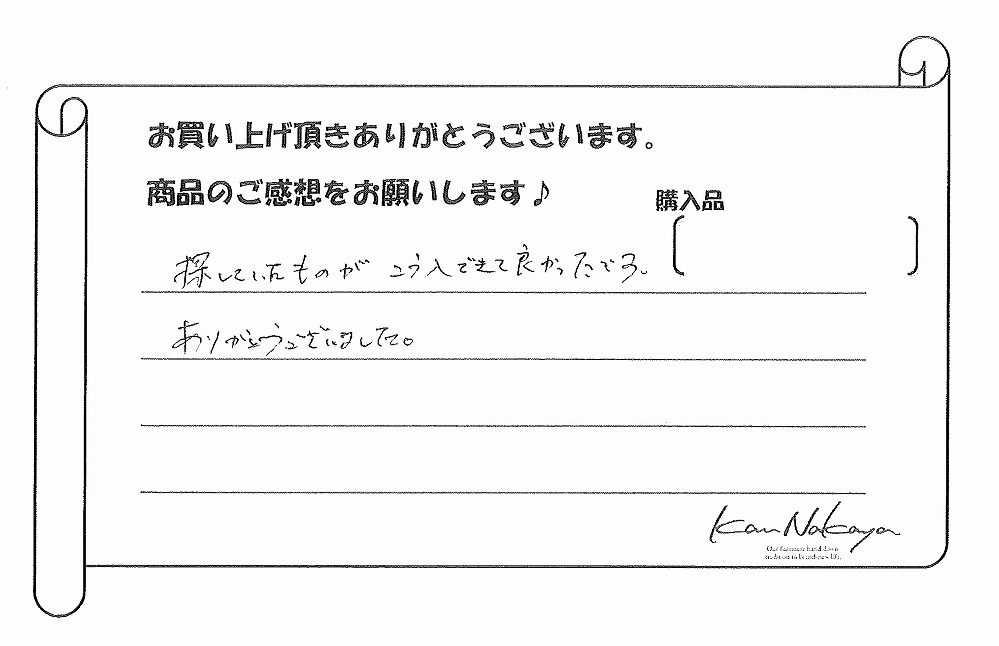 お買い上げ頂きありがとうございます。
商品のご感想をお願いします♪
購入品
探していたものが こう入できて良かったです。
ありがとうございました。
Kan Nakaya